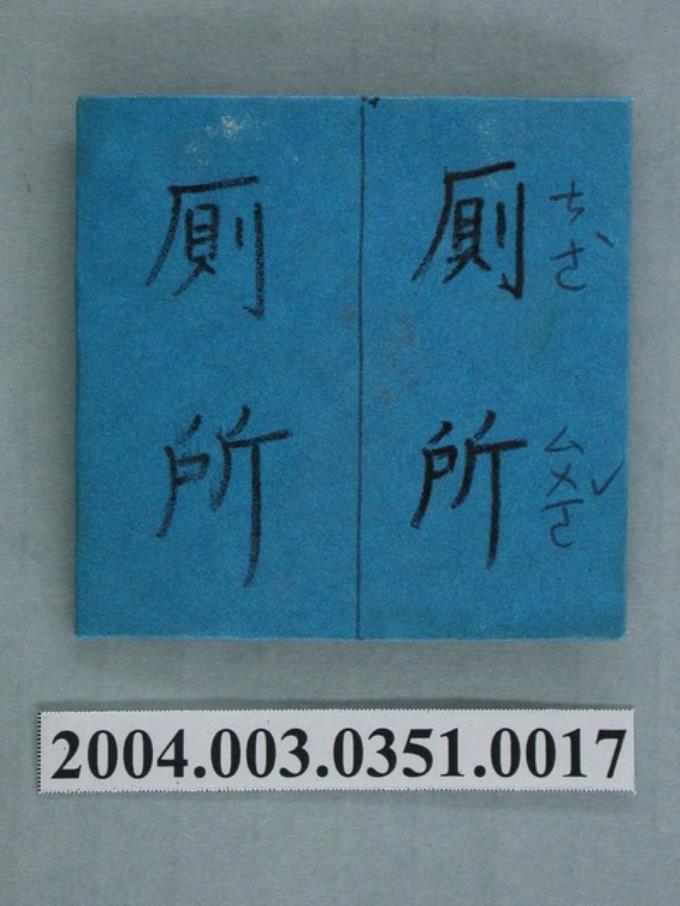 厠所
ㄘㄜˋ
ㄙㄨㄛˇ
厠所
2004.003.0351.0017